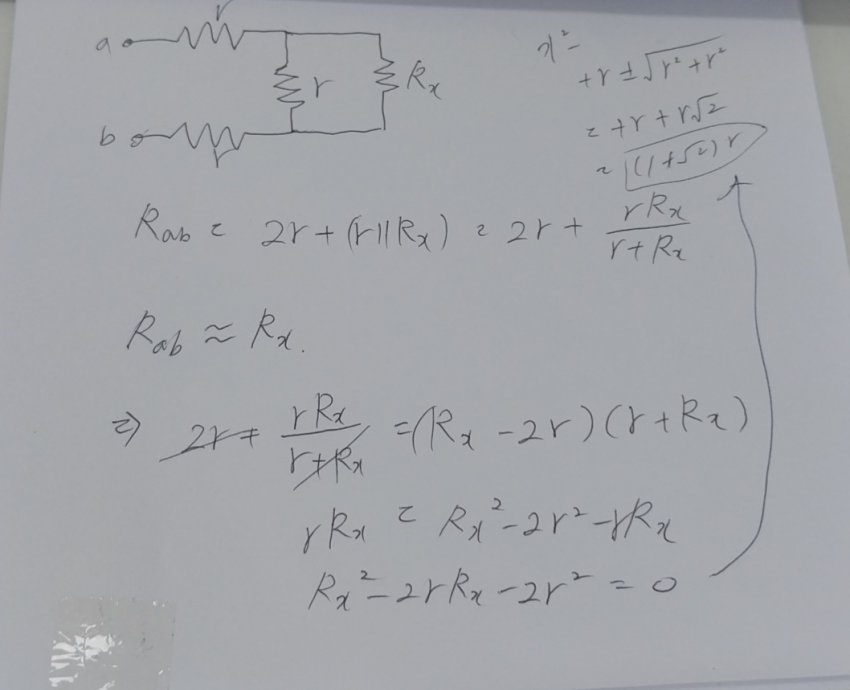 r
a
r Rx
b
r
x² -
+r ± √r² + r²
= +r + r√2
= (1+√2) r
Rab = 2r + (r || Rx) = 2r + rRx / r + Rx
Rab ≈ Rx.
⇒ 2r + rRx / r + Rx = (Rx - 2r)(r + Rx)
rRx = Rx² - 2r² - rRx
Rx² - 2rRx - 2r² = 0